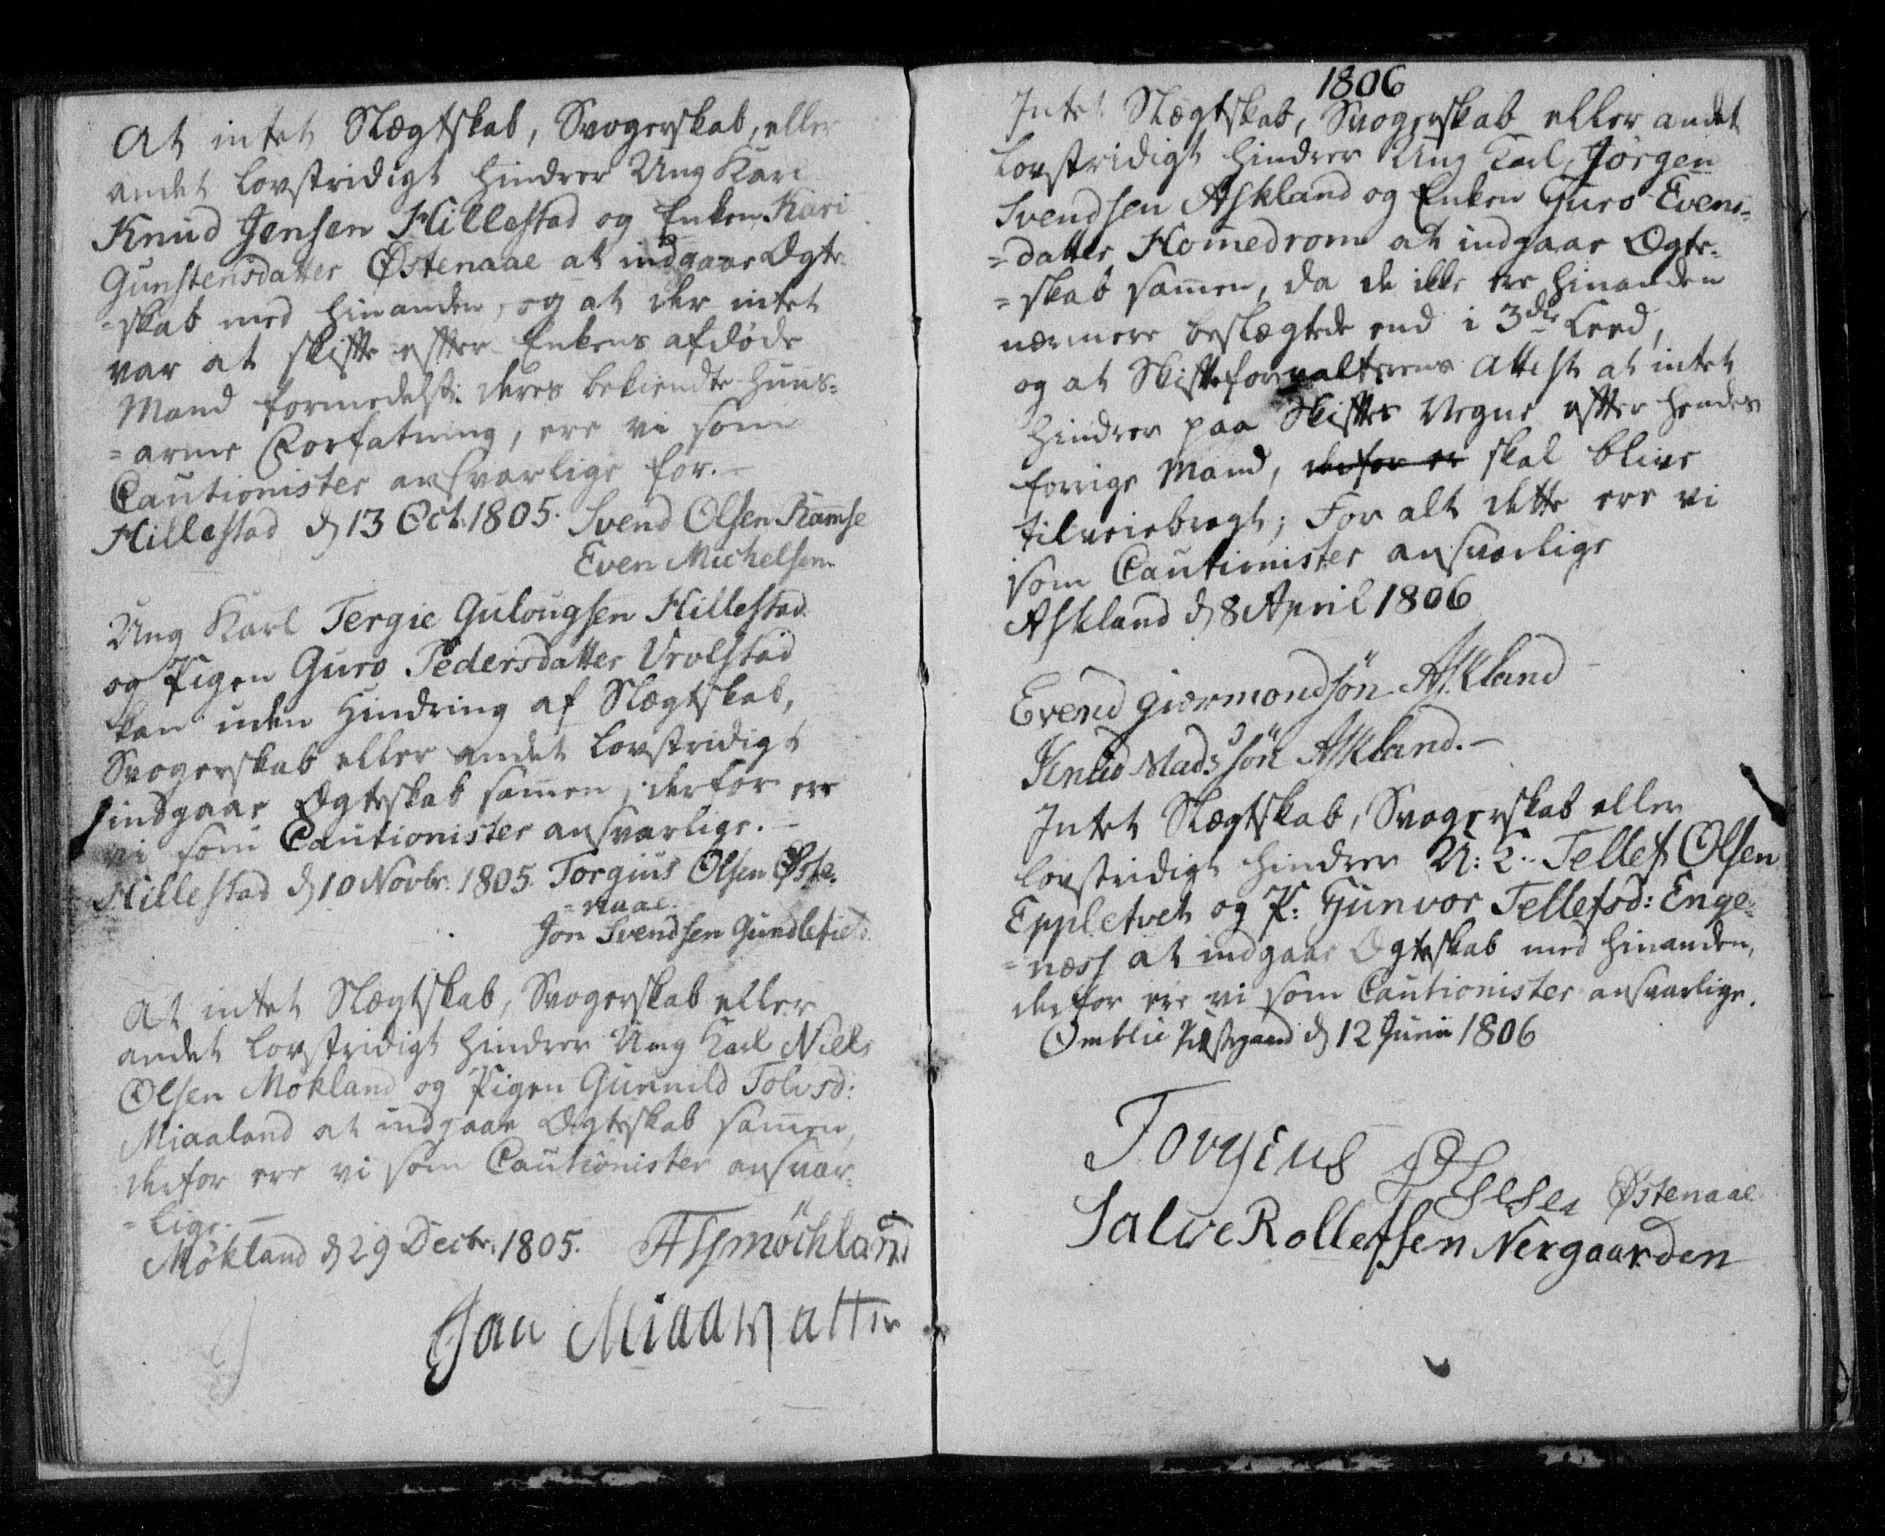 At intet Slægtskab, Svogerskab, eller
andet lovstridigt hindrer Ung Karl
Knud Jensen Hillestad og Enken Kari
Gunstensdatter Østenaae at indgaae Ægte-
=skab med hinanden, og at der intet
var at skifte efter Enkens afdøde
Mand formedelst deres bekiendte huus=
=arme Forfatning, ere vi som
Cautionister ansvarlige for.-
Hillestad d 13 Oct: 1805. Svend Olsen Ramse
Even Michelsen
Ung Karl Tergie Gulougsen Hillestad
og Pigen Guro Pedersdatter
kan uden Hindring af Slægtskab,
Svogerskab eller andet lovstridigt
indgaae Ægteskab samen, derfor ere
vi som Cautionister ansvarlige. -
Hillestad d 10 Novbr. 1805. Torgius Olsen Øste-
=naae.
Jon Svendsen Gundlefield.
At intet Slægtskab, Svogerskab eller
andet lovstridigt hindrer Ung Karl Niels
Olsen Mokland og Pigen Gunnild Tolvsd:
Miaaland at indgaae Ægteskab samen,
derfor ere vi som Cautionister ansvar-
=lige. -
Mökland d 29 Decbr. 1805.
Jan
1806
Intet Slægtskab, Svogerskab eller andet
lovstridigt hindrer Ung Karl Jörgen
Svendsen Askland og Enken Guro Evens=
=datter Homedrom at indgaae Ægte-
=skab samen, da de ikke ere hinanden
nærmere beslægtede end i 3die Leed,
og at Skifteforvalterens Attest at intet
hindrer paa Skiftes Vegne efter hendes
forrige Mand, derfor er skal blive
tilveiebragt; For alt dette ere vi
som Cautionister ansvarlige
Askland d 8 April 1806
Evend giermondsön Askland
Knud Madssön Askland. -
Intet Slægtskab, Svogerskab eller
lovstridigt hindrer U: K. Tellef Olsen
Eppletvet og P: Gunvor Tellefsd: Enge-
=næss at indgaae Ægteskab med hinanden,
derfor ere vi som Cautionister ansvarlige.
Omblie Præstgaard d 12 Junii 1806
Torgius Olsen Østenaae
Salve Rollefsen Nergaarden